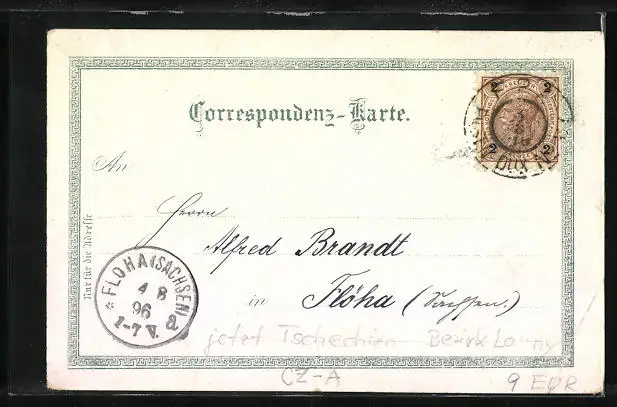 2 2
Correspondenz-Karte.
2 2
DUX
An
Herrn
Nur für die Adresse
Alfred Brandt
in Flöha (Sachsen.)
* FLÖHA (SACHSEN)
4 8
96
1-7 V. a
jetzt Tschechien Bezirk
CZ-A
9 EUR